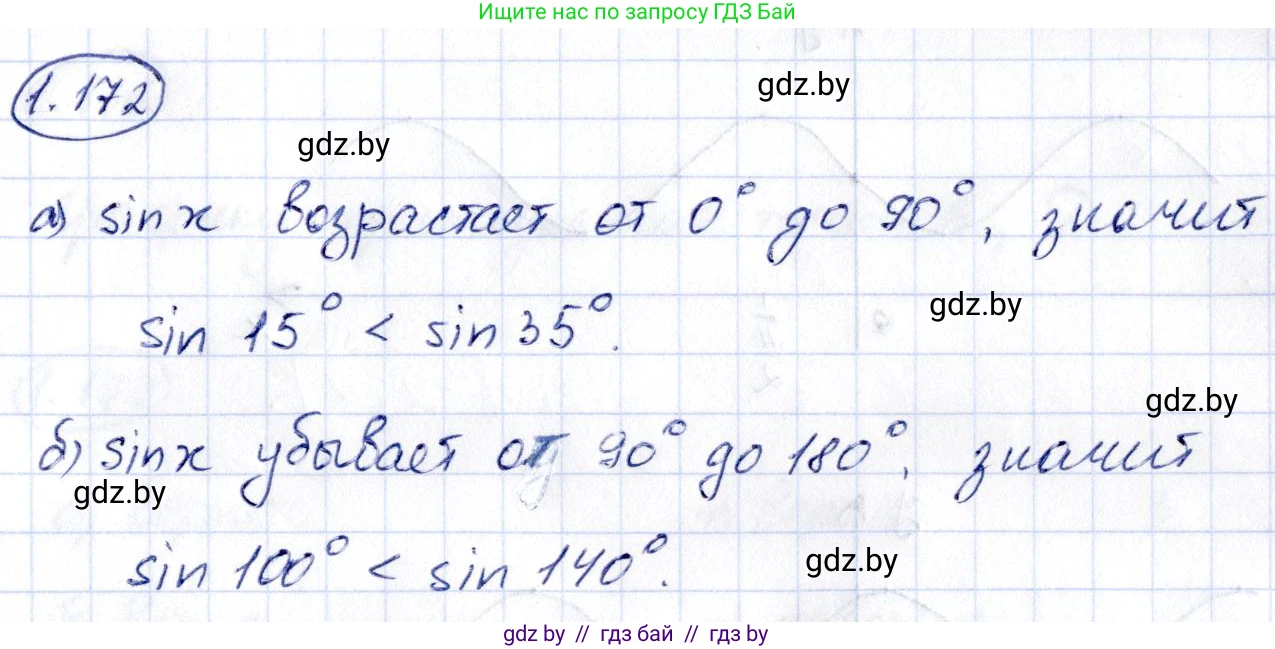 Ищите нас по запросу ГДЗ Бай
1.172
gdz.by
gdz.by
а) sin x возрастает от 0° до 90°, значит
gdz.by
sin 15° < sin 35°.
gdz.by
б) sin x убывает от 90° до 180°, значит
gdz.by
sin 100° < sin 140°.
gdz.by
gdz by // гдз бай // гдз by